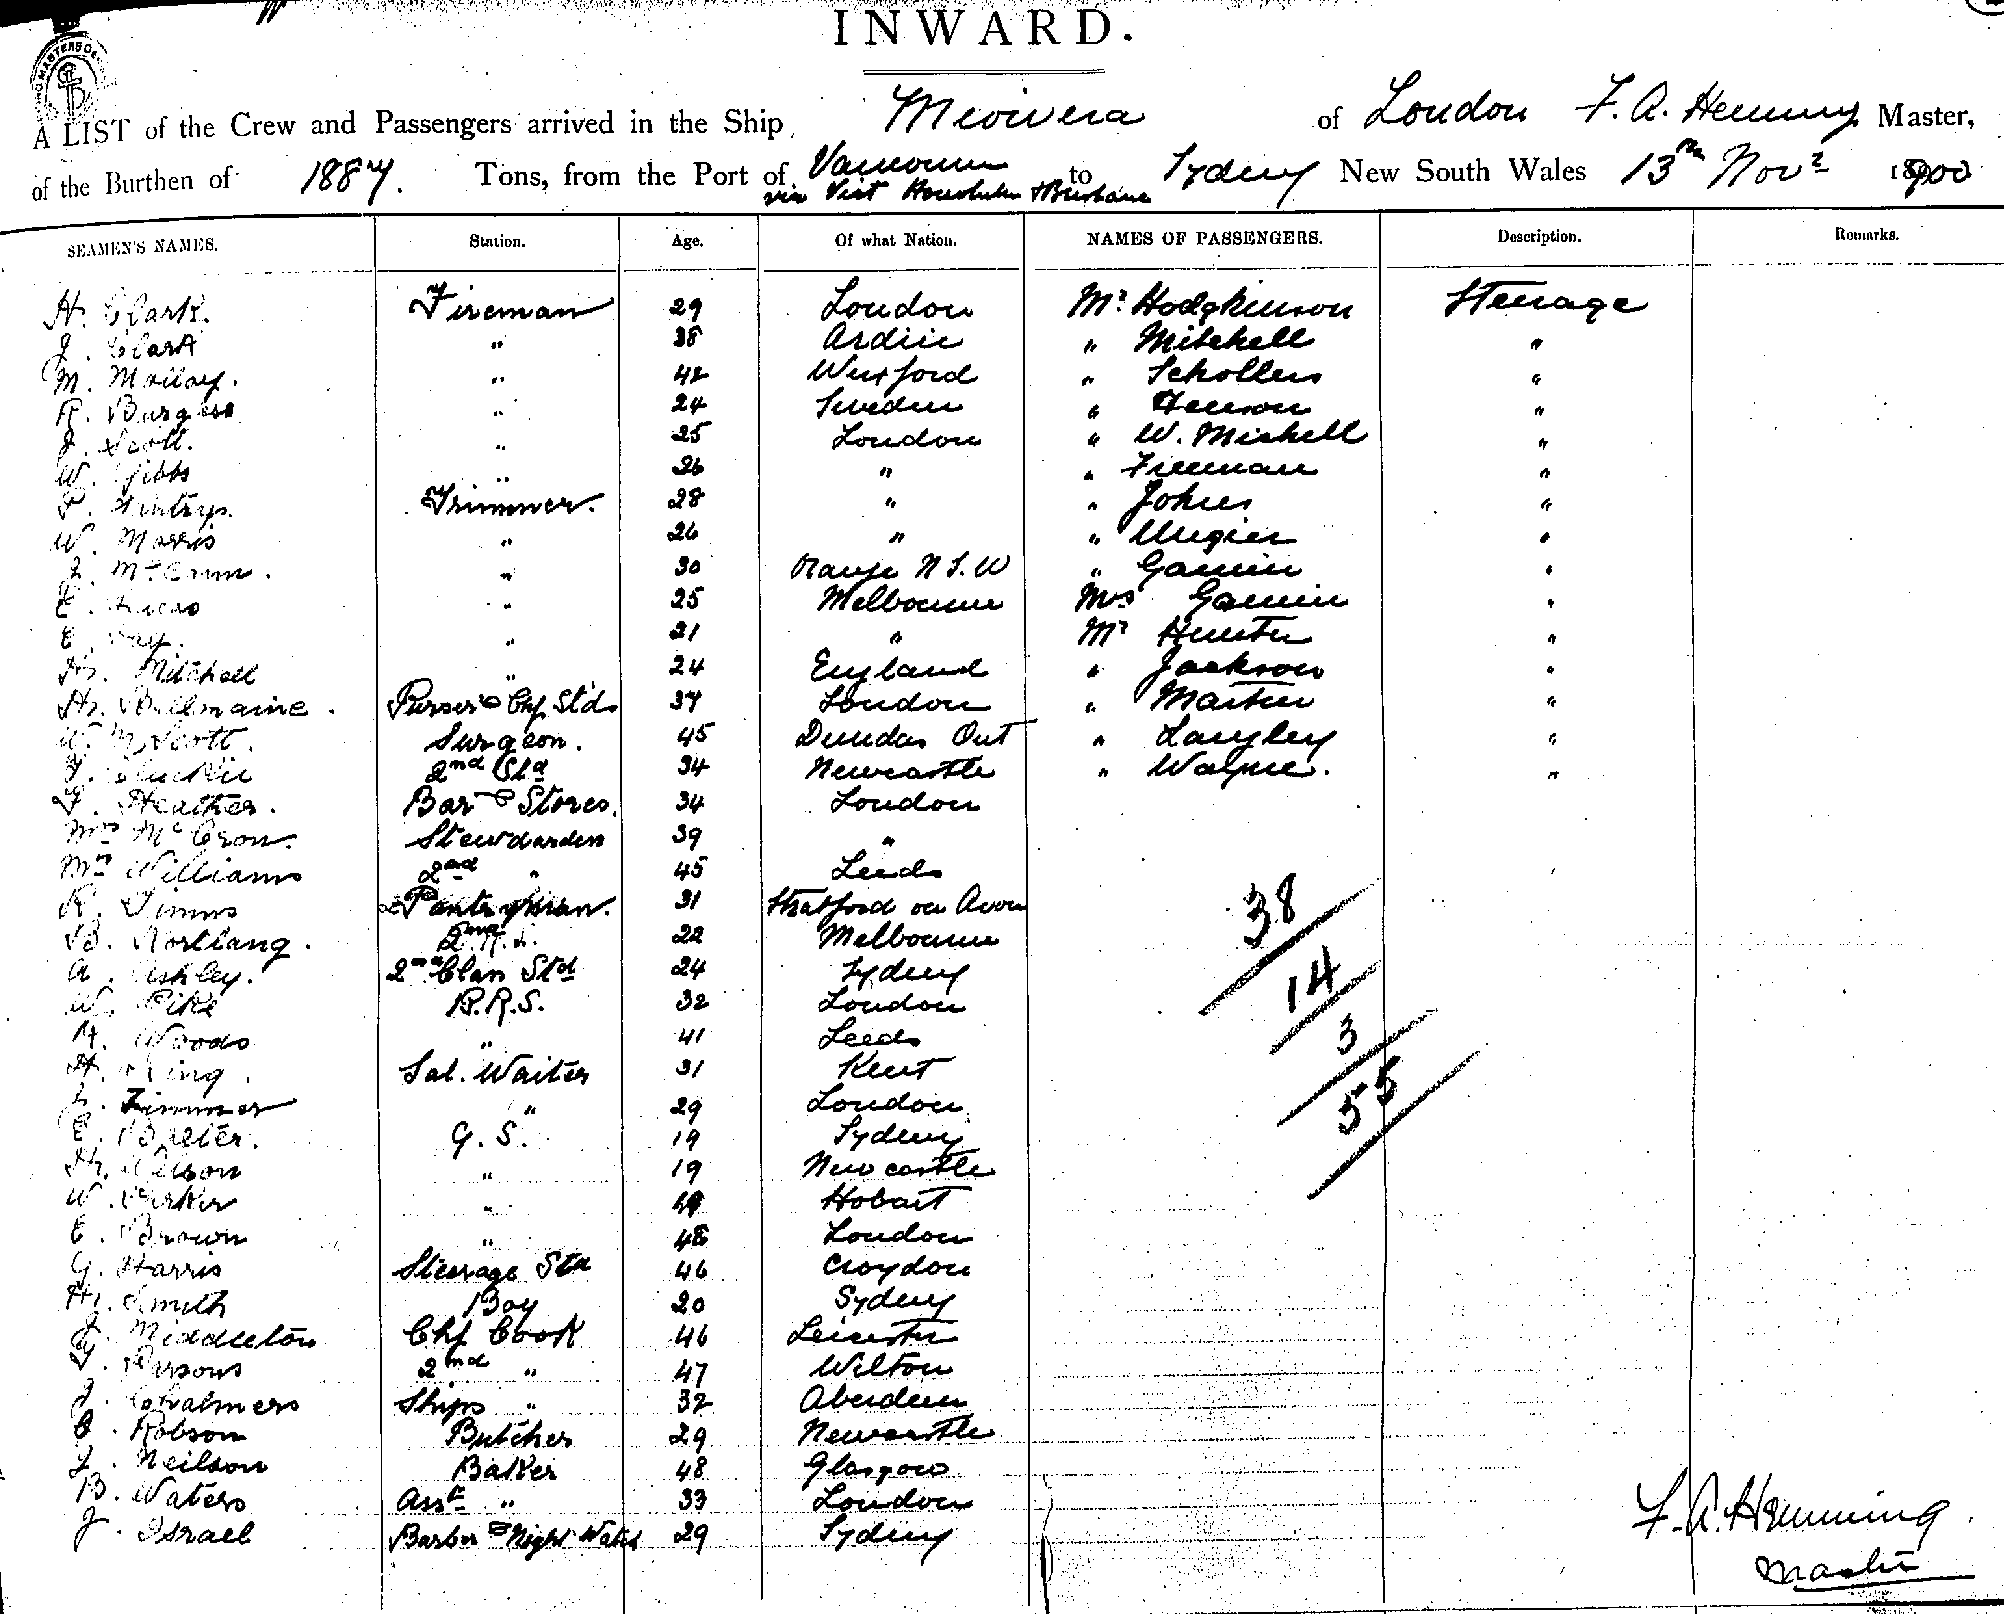 INWARD.
A LIST of the Crew and Passengers arrived in the Ship Miowera of London F. A. Hemming Master,
of the Burthen of 1887. Tons, from the Port of Vancouver to Sydney New South Wales 13th Novr 1900
via Vict Honolulu & Brisbane
SEAMEN'S NAMES. Station. Age. Of what Nation. NAMES OF PASSENGERS. Description. Remarks.
H. Clark. Fireman 29 London Mr Hodgkinson Steerage
J. Clark " 38 " Mitchell "
M. Molloy. " 42 Wexford " Schollers "
R. Burgess " 24 Sweden " "
J. Scott. " 25 London " W. Mishell "
W. Gibbs " 26 " " Freeman "
Trimmer. 28 " " Johns "
W. Morris " 26 " " "
" 30 Orange N.S.W " Gannin "
E. Lucas " 25 Melbourne Mrs Gannin "
E. " 21 " Mr Hunter "
H. Mitchell " 24 England " Jackson "
H. Bellmaine. Purser & Chf Std 37 London " Martin "
Scott. Surgeon. 45 Dundas Ont " Langley "
2nd Std 34 Newcastle " "
F. Heather. Bar & Stores. 34 London
Mrs McCron. Stewardess 39 "
Mrs Williams 2nd " 45 Leeds
R. Timms Pantryman. 31 Stratford on Avon
B. 22 Melbourne
A. Ashley. 2nd Clas Std 24 Sydney
W. Pike B.R.S. 32 London
H. Woods " 41 Leeds
H. King. Sal. Waiter 31 Kent
Zimmer " 29 London
E. G.S. 19 Sydney
H. " 19 Newcastle
W. Parker " 19 Hobart
E. Brown " 48 London
G. Harris Steerage Std 46 Croydon
H. Smith Boy 20 Sydney
J. Middleton Chf Cook 46 Leicester
Parsons 2nd " 47 Wilton
J. Chalmers Ships " 32 Aberdeen
Robson Butcher 29 Newcastle
J. Neilson Baker 48 Glasgow
B. Waters Asst " 33 London
J. Israel Barber & Night Watch 29 Sydney
38
14
3
55
F. A. Hemming
Master